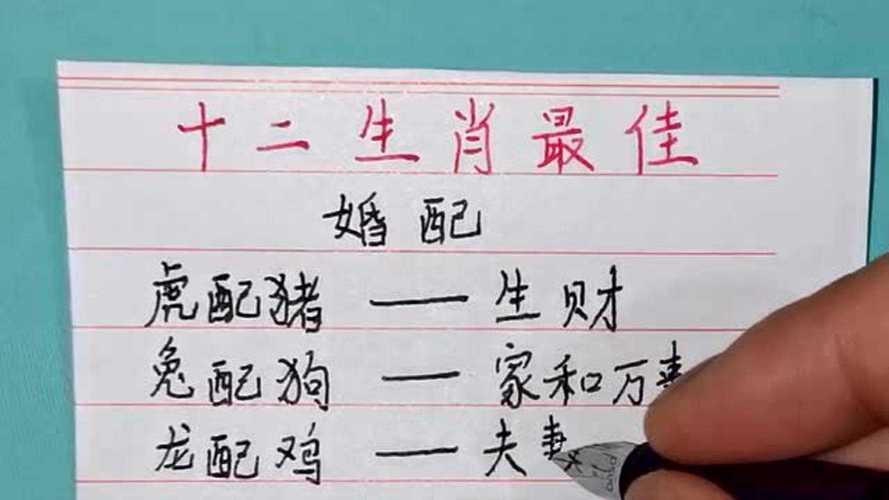 十二生肖最佳
婚配
虎配猪 —— 生财
兔配狗 —— 家和万事
龙配鸡 —— 夫妻